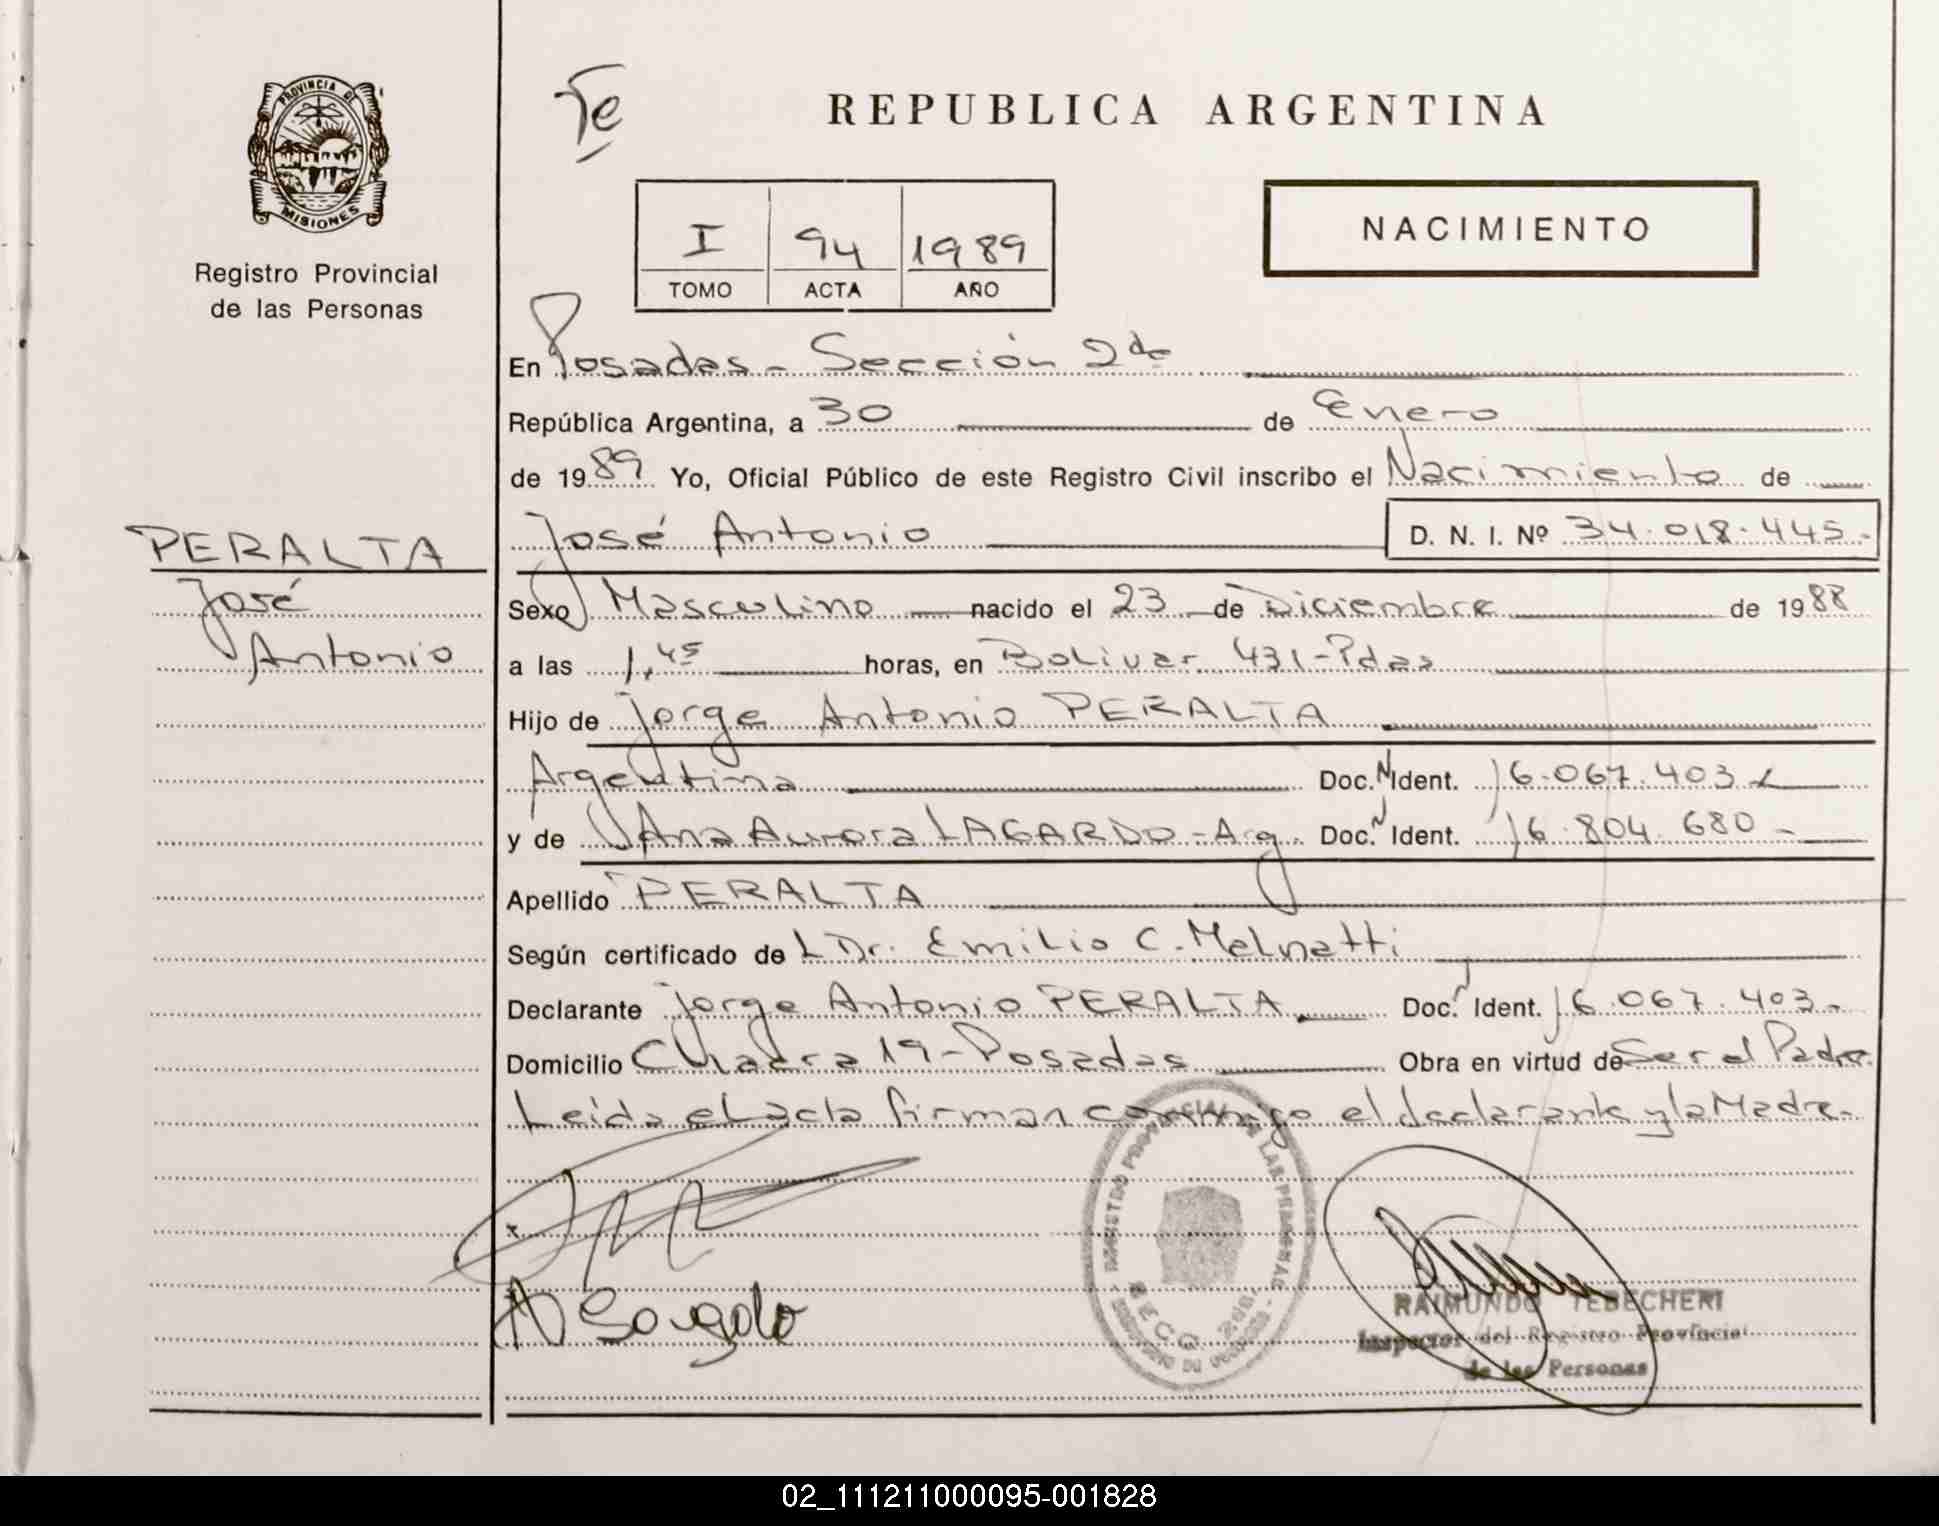 PROVINCIA DE
MISIONES
Registro Provincial
de las Personas
Te
REPUBLICA ARGENTINA
NACIMIENTO
I 94 1989
TOMO ACTA AÑO
En Posadas - Sección 2da
República Argentina, a 30 de Enero
de 1989 Yo, Oficial Público de este Registro Civil inscribo el Nacimiento de
José Antonio D. N. I. Nº 34.018.445.-
PERALTA
José
Antonio
Sexo Masculino nacido el 23 de Diciembre de 1988
a las 1,45 horas, en Bolivar 431-Pdas
Hijo de Jorge Antonio PERALTA
Argentina Doc. N Ident. 16.067.403
y de Ana Aurora LAGARDO - Arg. Doc. N Ident. 16.804.680 -
Apellido PERALTA
Según certificado de L Dr. Emilio C. Melnatti
Declarante Jorge Antonio PERALTA Doc. N Ident. 16.067.403 -
Domicilio Chacra 19 - Posadas Obra en virtud de Ser el Padre
Leida el acta firman conmigo el declarante y la Madre -
REGISTRO PROVINCIAL DE LAS PERSONAS
SECC. 2da
RAIMUNDO TEBECHERI
Inspector del Registro Provincial
de las Personas
02_111211000095-001828